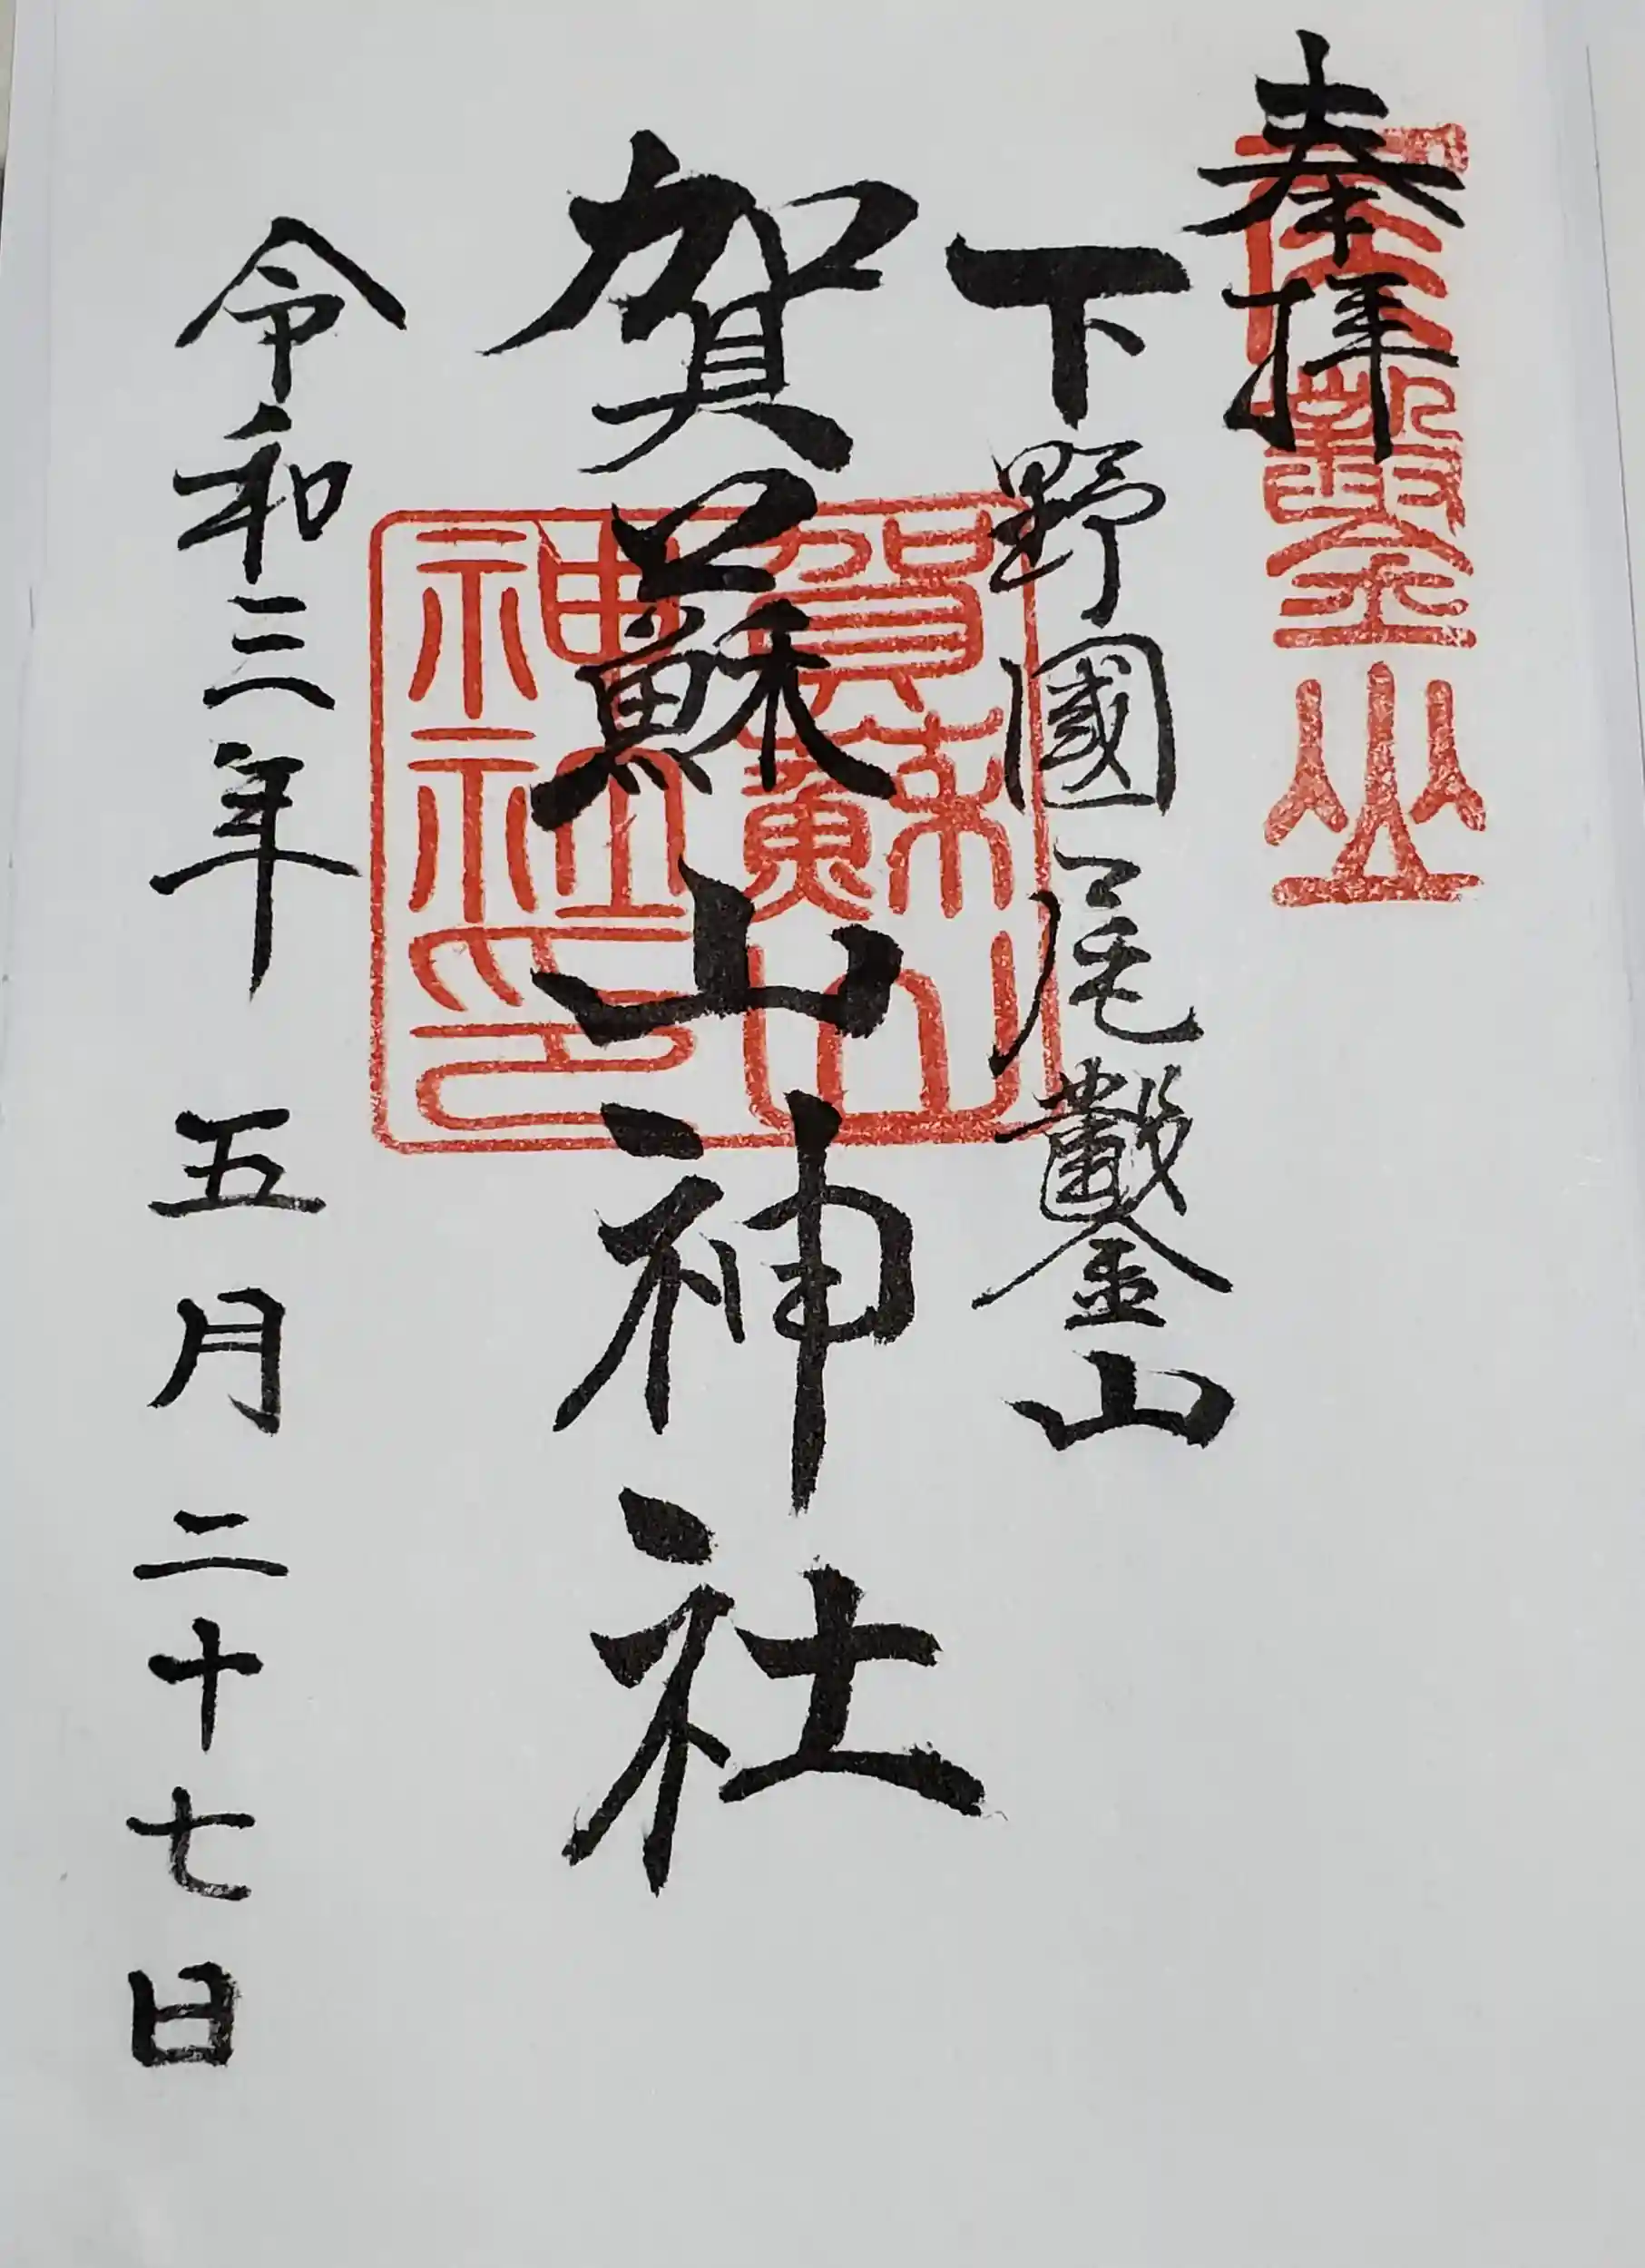 奉拝
尾鑿山
下野國尾鑿山
賀蘇山神社
賀蘇山
神社印
令和三年 五月 二十七日